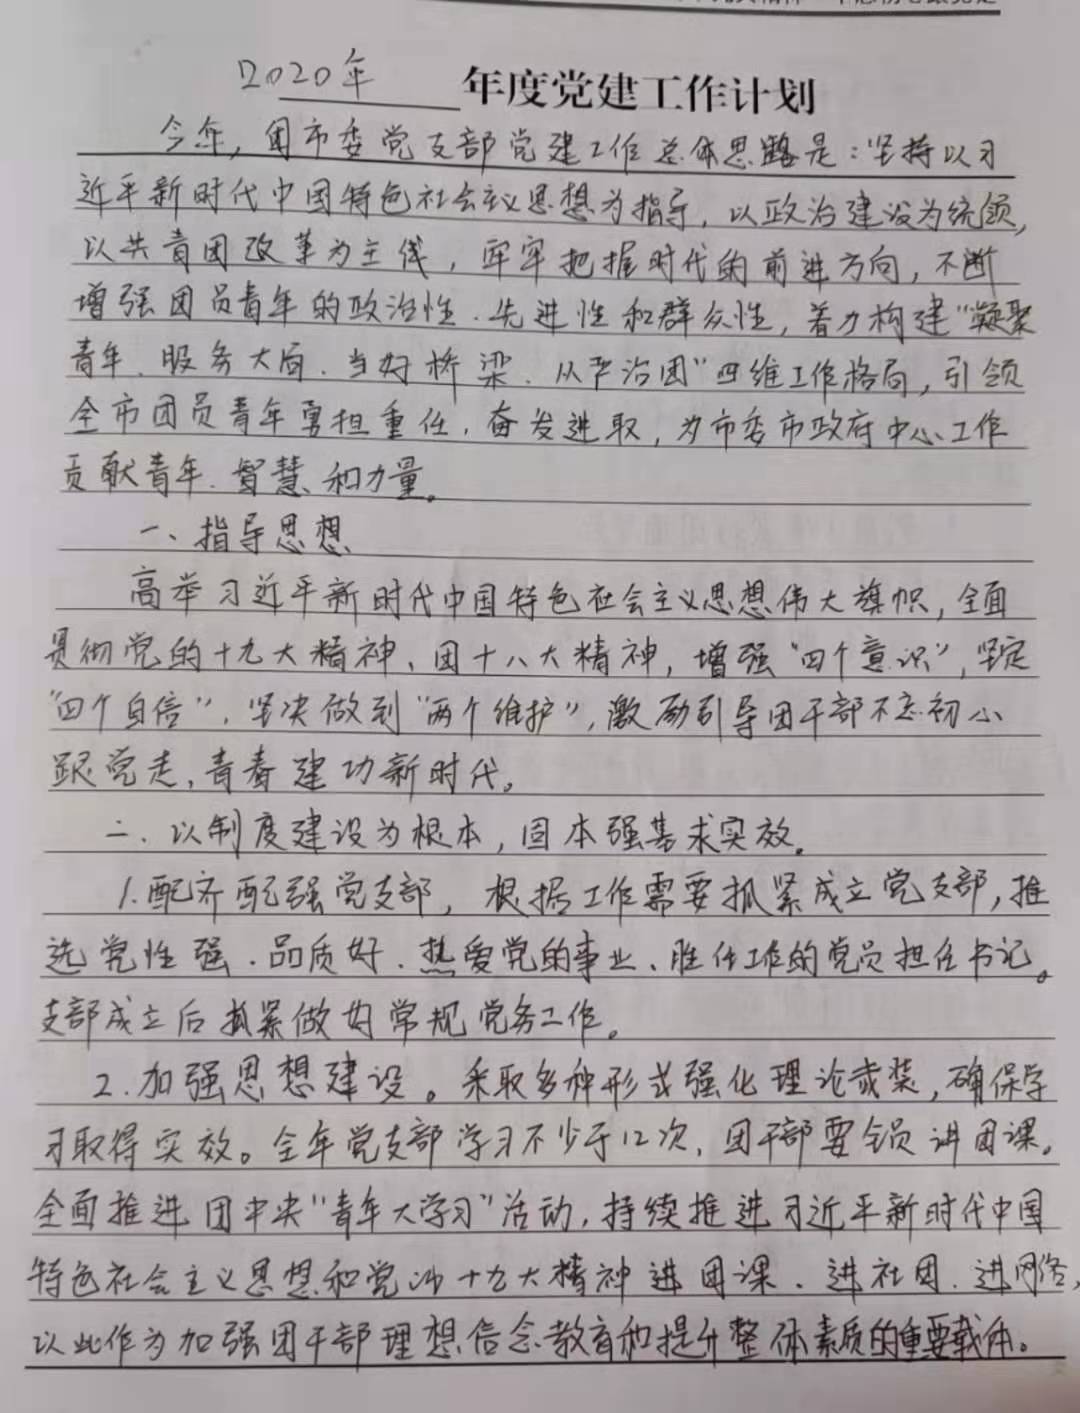 2020年 年度党建工作计划
今年，团市委党支部党建工作总体思路是：坚持以习
近平新时代中国特色社会主义思想为指导，以政治建设为统领，
以共青团改革为主线，牢牢把握时代的前进方向，不断
增强团员青年的政治性、先进性和群众性，着力构建“凝聚
青年、服务大局、当好桥梁、从严治团”四维工作格局，引领
全市团员青年勇担重任，奋发进取，为市委市政府中心工作
贡献青年、智慧和力量。
一、指导思想
高举习近平新时代中国特色社会主义思想伟大旗帜，全面
贯彻党的十九大精神、团十八大精神，增强“四个意识”，坚定
“四个自信”，坚决做到“两个维护”，激励引导团干部不忘初心
跟党走，青春建功新时代。
二、以制度建设为根本，固本强基求实效。
1.配齐配强党支部，根据工作需要抓紧成立党支部，推
选党性强、品质好、热爱党的事业、胜任工作的党员担任书记。
支部成立后抓紧做好常规党务工作。
2.加强思想建设。采取多种形式强化理论武装，确保学
习取得实效。全年党支部学习不少于12次，团干部要全员讲团课。
全面推进团中央“青年大学习”活动，持续推进习近平新时代中国
特色社会主义思想和党的十九大精神进团课、进社团、进网络，
以此作为加强团干部理想信念教育和提升整体素质的重要载体。